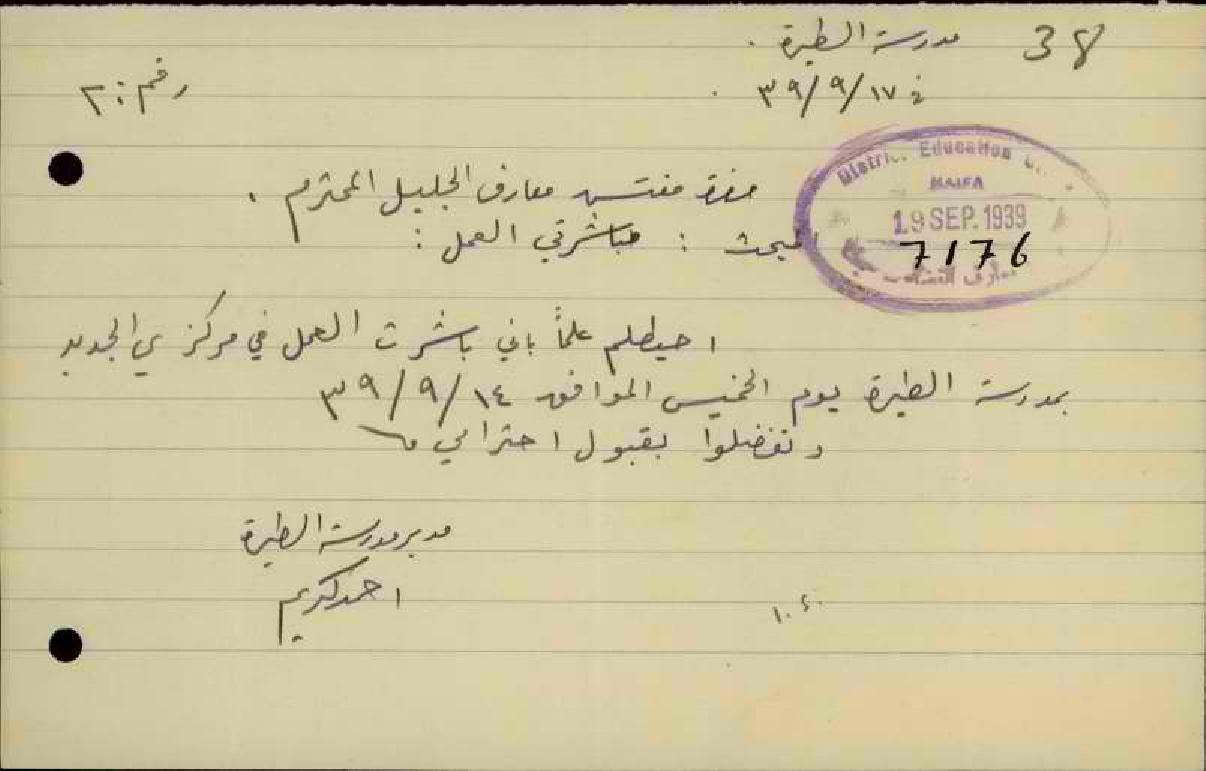 38
مدرسة الطيرة.
في ١٧/٩/٣٩.
رقم: ٢
District Education
HAIFA
19 SEP. 1939
7176
معارف
حضرة مفتش معارف الجليل المحترم.
المبحث: مباشرتي العمل:
احيطكم علماً باني باشرت العمل في مركزي الجديد
بمدرسة الطيرة يوم الخميس الموافق ١٤/٩/٣٩
وتفضلوا بقبول احترامي
مدير مدرسة الطيرة
احمد كريم